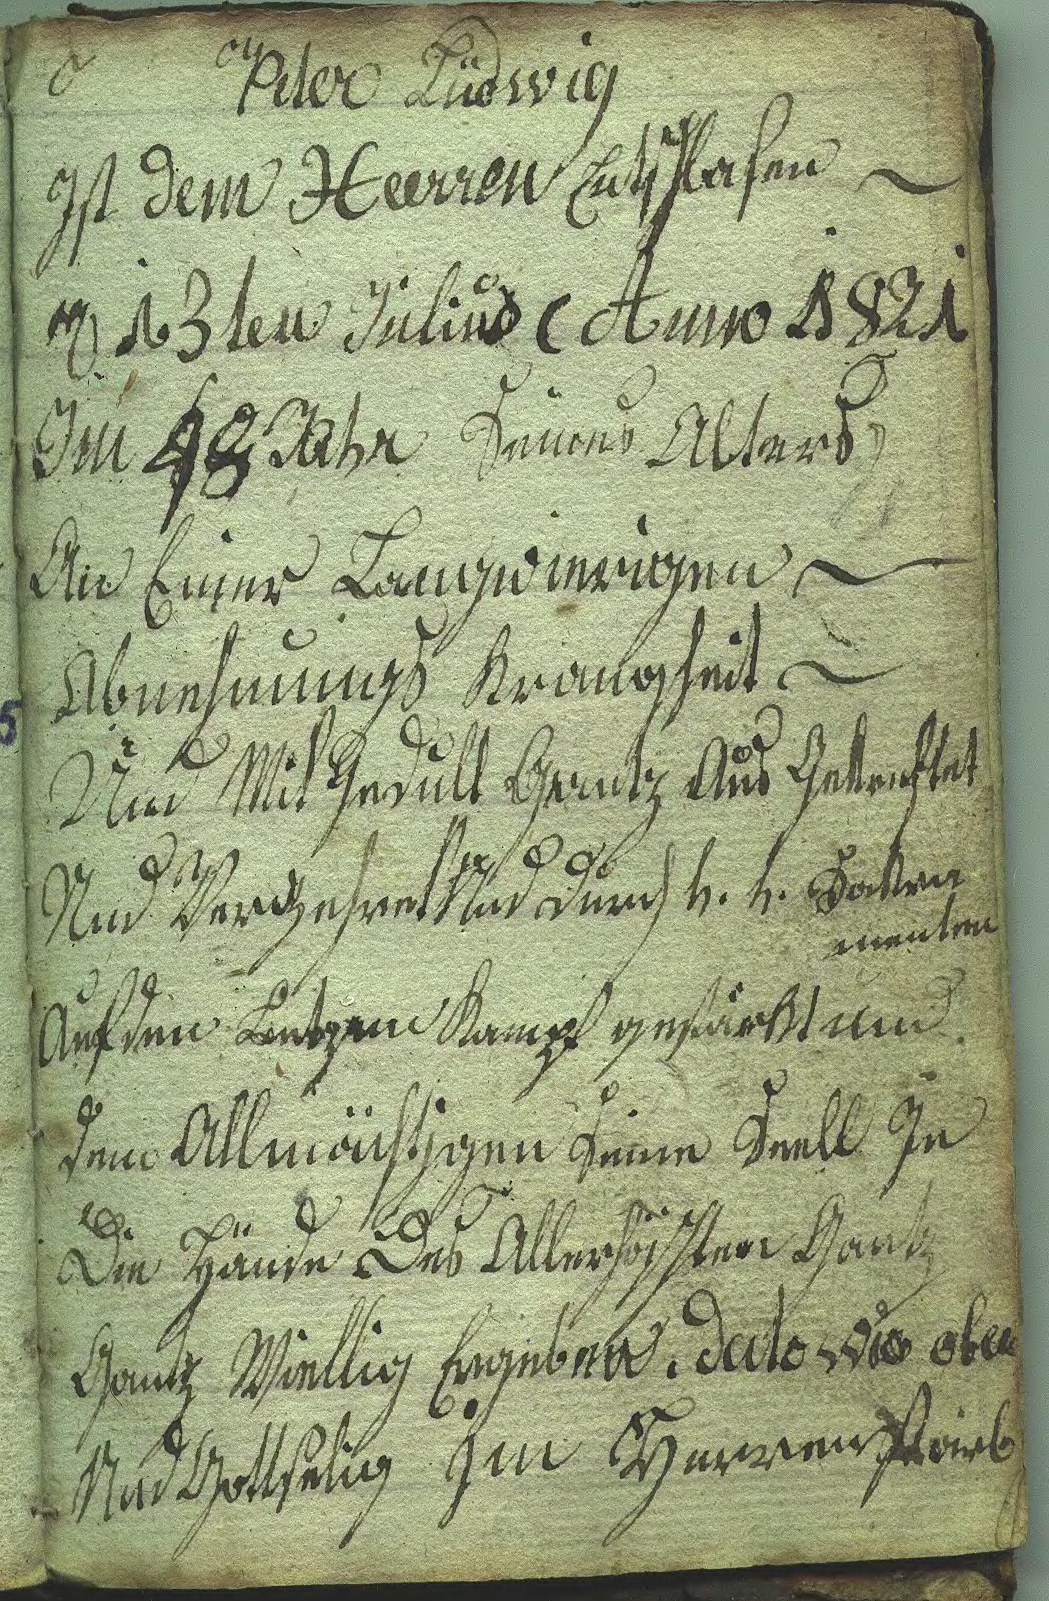 Peter Ludwig
Ist dem Heerren Entschlafen
13ten Julius Anno 1821
Im 48 Jahr Seines Alters
An Einer Langwierigen
Abnehmungs Krangheit
Und Mit Gedult Gantz Aus
Und Durch h. h. Sakra
menten
Auf den Letzen Kampf gestärkt und
dem Allmächtigen Seine Seell In
Die Hände Des Allerhöchsten Gantz
Gantz Wiellig Ergeben. Dato wie oben
Und Gottselig Im Herren starb